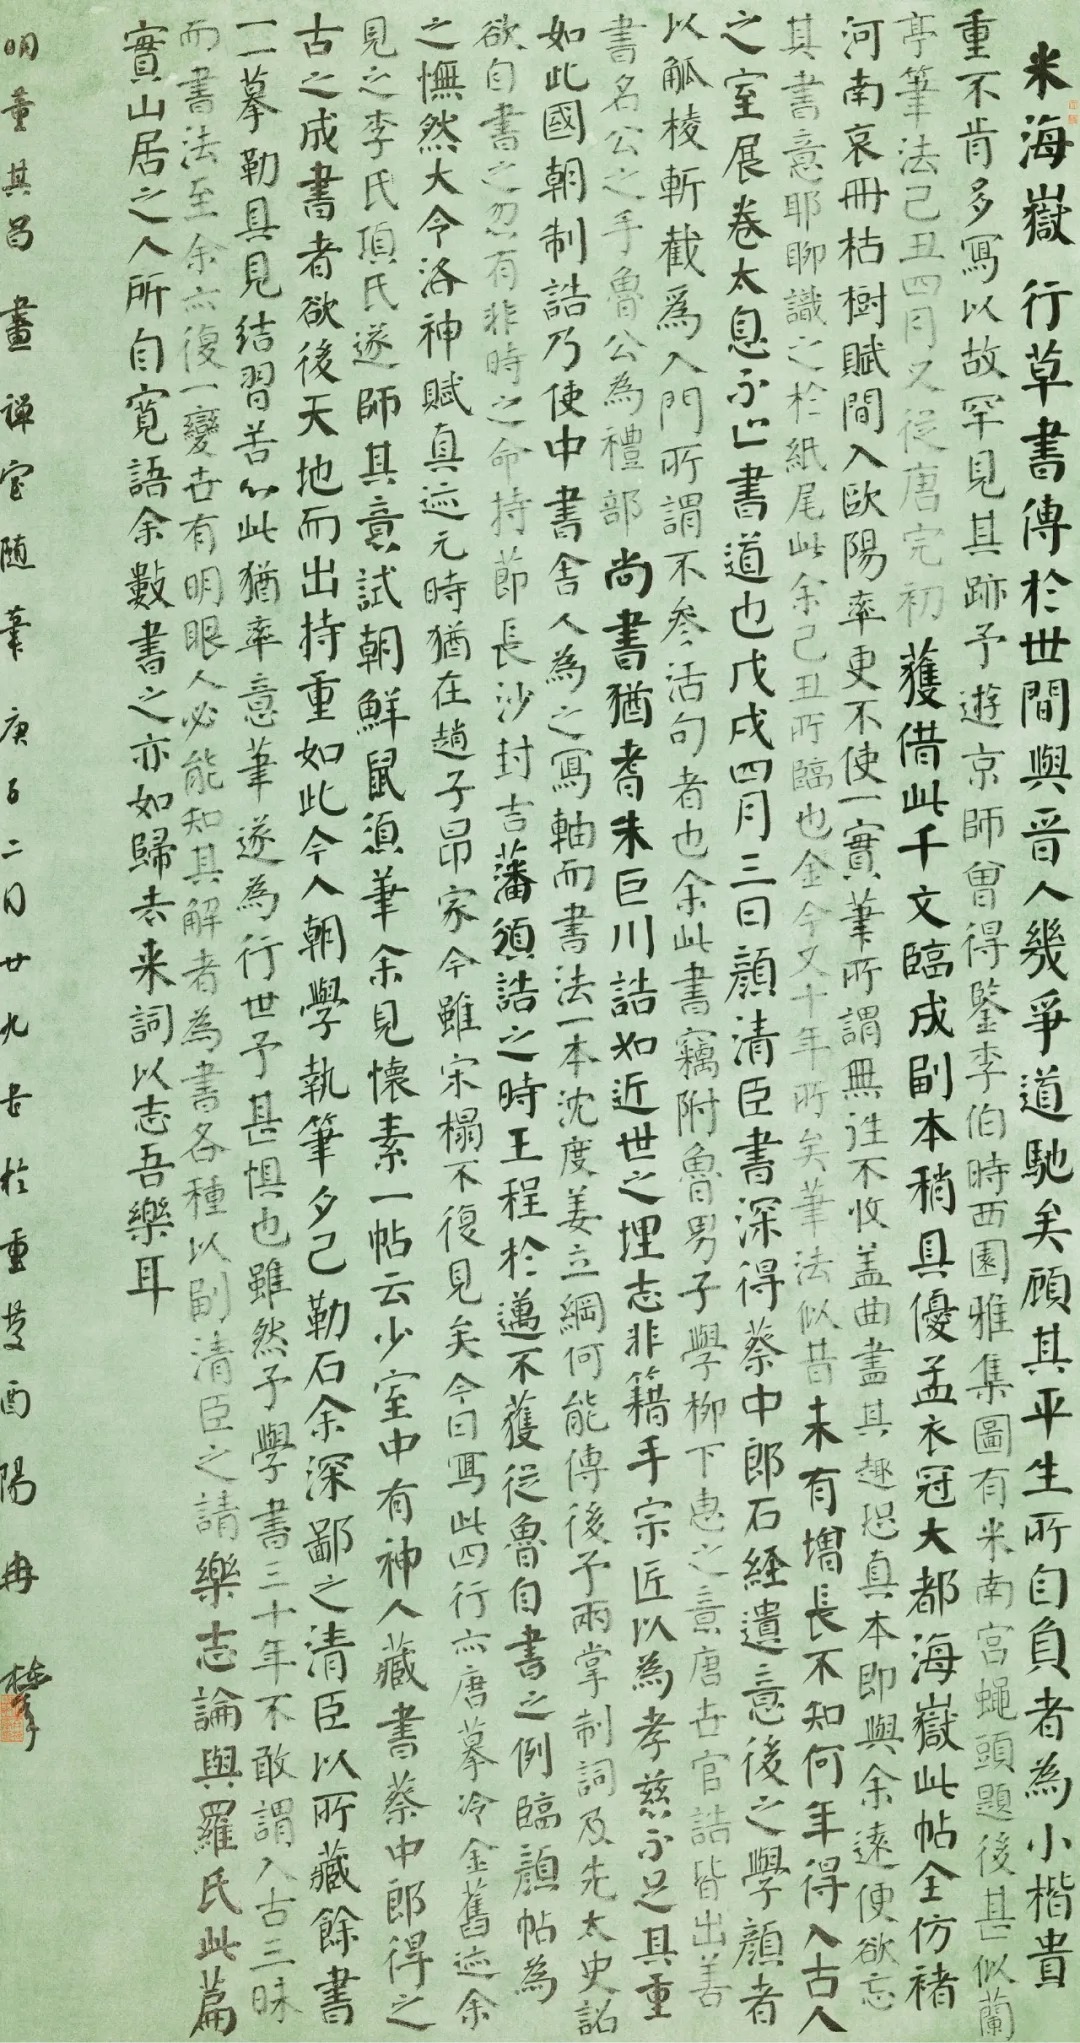 米海嶽行草書傳於世間與晉人幾爭道馳矣顧其平生所自負者為小楷貴
重不肯多寫以故罕見其跡予遊京師曾得鑒李伯時西園雅集圖有米南宮蠅頭題後甚似蘭
亭筆法己丑四月又從唐完初獲借此千文臨成副本稍具優孟衣冠大都海嶽此帖全仿褚
河南哀冊枯樹賦間入歐陽率更不使一實筆所謂無往不收蓋曲盡其趣恐真本即與余遠便欲忘
其書意耶聊識之於紙尾此余己丑所臨也今又十年所矣筆法似昔未有增長不知何年得入古人
之室展卷太息不止書道也戊戌四月三日顏清臣書深得蔡中郎石經遺意後之學顏者
以觚棱斬截為入門所謂不參活句者也余此書竊附魯男子學柳下惠之意唐世官誥皆出善
書名公之手魯公為禮部尚書猶耆朱巨川誥如近世之埋志非籍手宗匠以為孝慈不足其重
如此國朝制誥乃使中書舍人為之寫軸而書法一本沈度姜立綱何能傳後予兩掌制詞及先太史誥
欲自書之忽有非時之命持節長沙封吉藩頒誥之時王程於邁不獲從魯自書之例臨顏帖為
之憮然大令洛神賦真迹元時猶在趙子昂家今雖宋榻不復見矣今日寫此四行亦唐摹冷金舊迹余
見之李氏項氏遂師其意試朝鮮鼠須筆余見懷素一帖云少室中有神人藏書蔡中郎得之
古之成書者欲後天地而出持重如此今人朝學執筆夕己勒石余深鄙之清臣以所藏餘書
一一摹勒具見結習苦心此猶率意筆遂為行世予甚懼也雖然予學書三十年不敢謂入古三昧
而書法至余亦復一變世有明眼人必能知其解者為書各種以副清臣之請樂志論與羅氏此篇
實山居之人所自寬語余數書之亦如歸去來詞以志吾樂耳
明董其昌畫禪室隨筆庚子二月廿九日於重慶酉陽冉